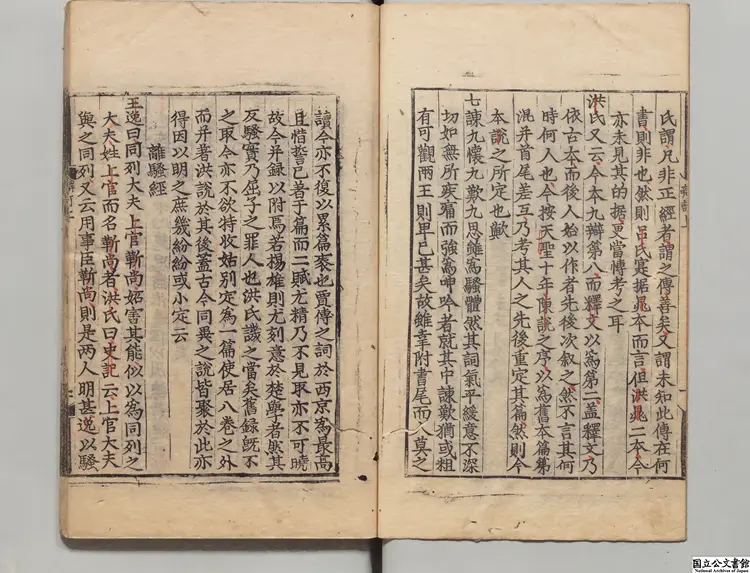 氏謂凡非正經者謂之傳善矣又謂未知此傳在何
書則非也然則呂氏寔据晁本而言但洪晁二本今
亦未見其的据更當博考之耳
洪氏又云今本九辯第八而釋文以爲第二盖釋文乃
依古本而後人始以作者先後次叙之然不言其何
時何人也今按天聖十年陳說之序以爲舊本篇第
混并首尾差互乃考其人之先後重定其篇然則今
本說之所定也歟
七諫九懷九歎九思雖爲騷體然其詞氣平緩意不深
切如無所疾痛而強爲呻吟者就其中諫歎猶或粗
有可觀兩王則卑已甚矣故雖幸附書尾而人莫之
讀今亦不復以累篇袠也賈傅之詞於西京爲最高
且惜誓已著于篇而二賦尤精乃不見取亦不可曉
故今并録以附焉若揚雄則尤刻意於楚學者然其
反騷實乃屈子之罪人也洪氏譏之當矣舊録既不
之取今亦不欲特收姑別定爲一篇使居八卷之外
而并著洪說於其後蓋古今同異之說皆聚於此亦
得因以明之庶幾紛紛或小定云
離騷經
王逸曰同列大夫上官靳尚妬害其能似以爲同列之
大夫姓上官而名靳尚者洪氏曰史記云上官大夫
與之同列又云用事臣靳尚則是两人明甚逸以騷
国立公文書館
National Archives of Japan